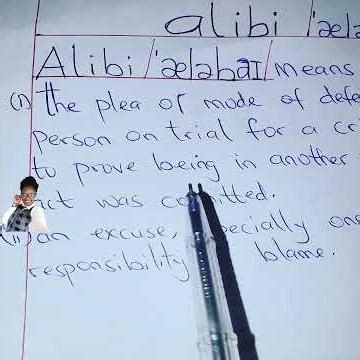 alibi /'ælə
Alibi /'æləbaɪ/ means
(i) The plea or mode of defe
person on trial for a cri
to prove being in another
act was committed.
(ii) an excuse, especially one
responsibility blame.